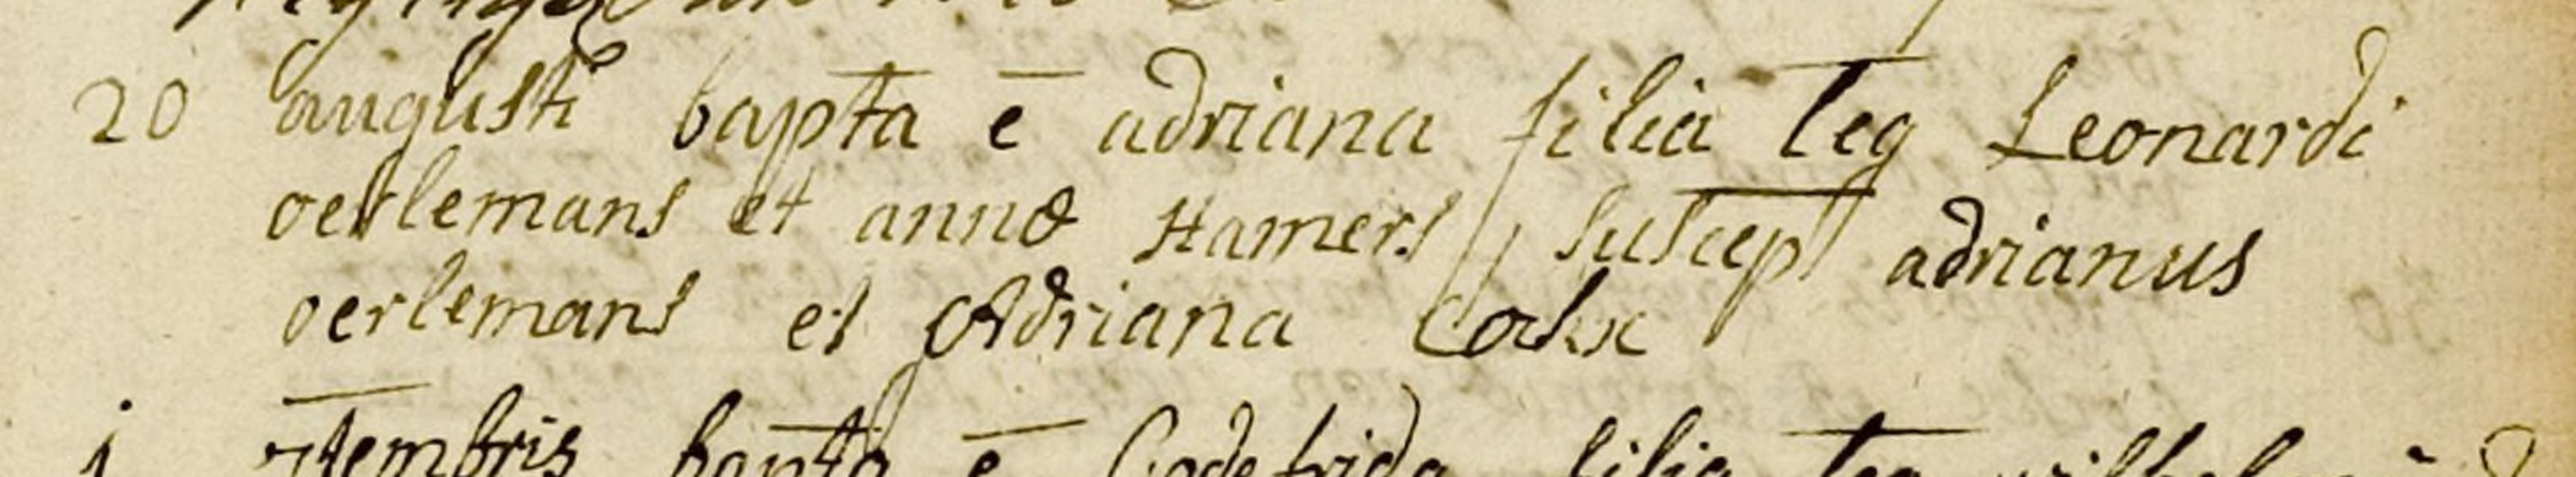 20 augusti bapta e adriana filia leg Leonardi
oerlemans et annæ Hamers suscep adrianus
oerlemans et Adriana
1 7tembris bapta e Godefrida filia leg